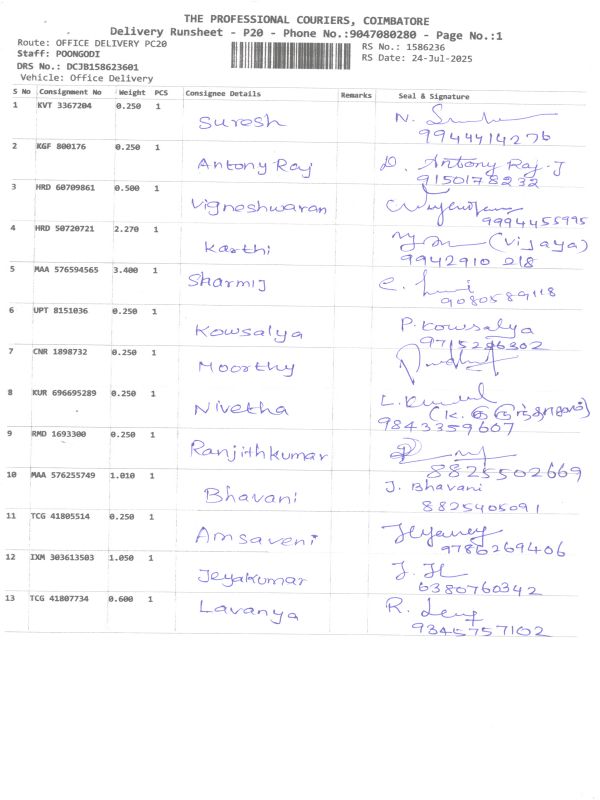 THE PROFESSIONAL COURIERS, COIMBATORE
Delivery Runsheet - P20 - Phone No.:9047080280 - Page No.:1
Route: OFFICE DELIVERY PC20
RS No.: 1586236
Staff: POONGODI
RS Date: 24-Jul-2025
DRS No.: DCJB158623601
Vehicle: Office Delivery
S No Consignment No Weight PCS Consignee Details Remarks Seal & Signature
1 KVT 3367204 0.250 1 Suresh
9944414276
2 KGF 800176 0.250 1 Antony Raj D. Antony Raj. J
9150178232
3 HRD 60709861 0.500 1 Vigneshwaran
9994455995
4 HRD 50720721 2.270 1 Karthi (Vijaya)
9942910 218
5 MAA 576594565 3.400 1 Sharmij
9080589118
6 UPT 8151036 0.250 1 Kowsalya P. Kowsalya
9715296302
7 CNR 1898732 0.250 1 Moorthy
8 KUR 696695289 0.250 1 Nivetha
9843359607
9 RMD 1693300 0.250 1 Ranjithkumar
8825502669
10 MAA 576255749 1.010 1 Bhavani J. Bhavani
8825405091
11 TCG 41805514 0.250 1 Amsaveni
9786269406
12 IXM 303613503 1.050 1 Jeyakumar
6380760342
13 TCG 41807734 0.600 1 Lavanya
9345757102